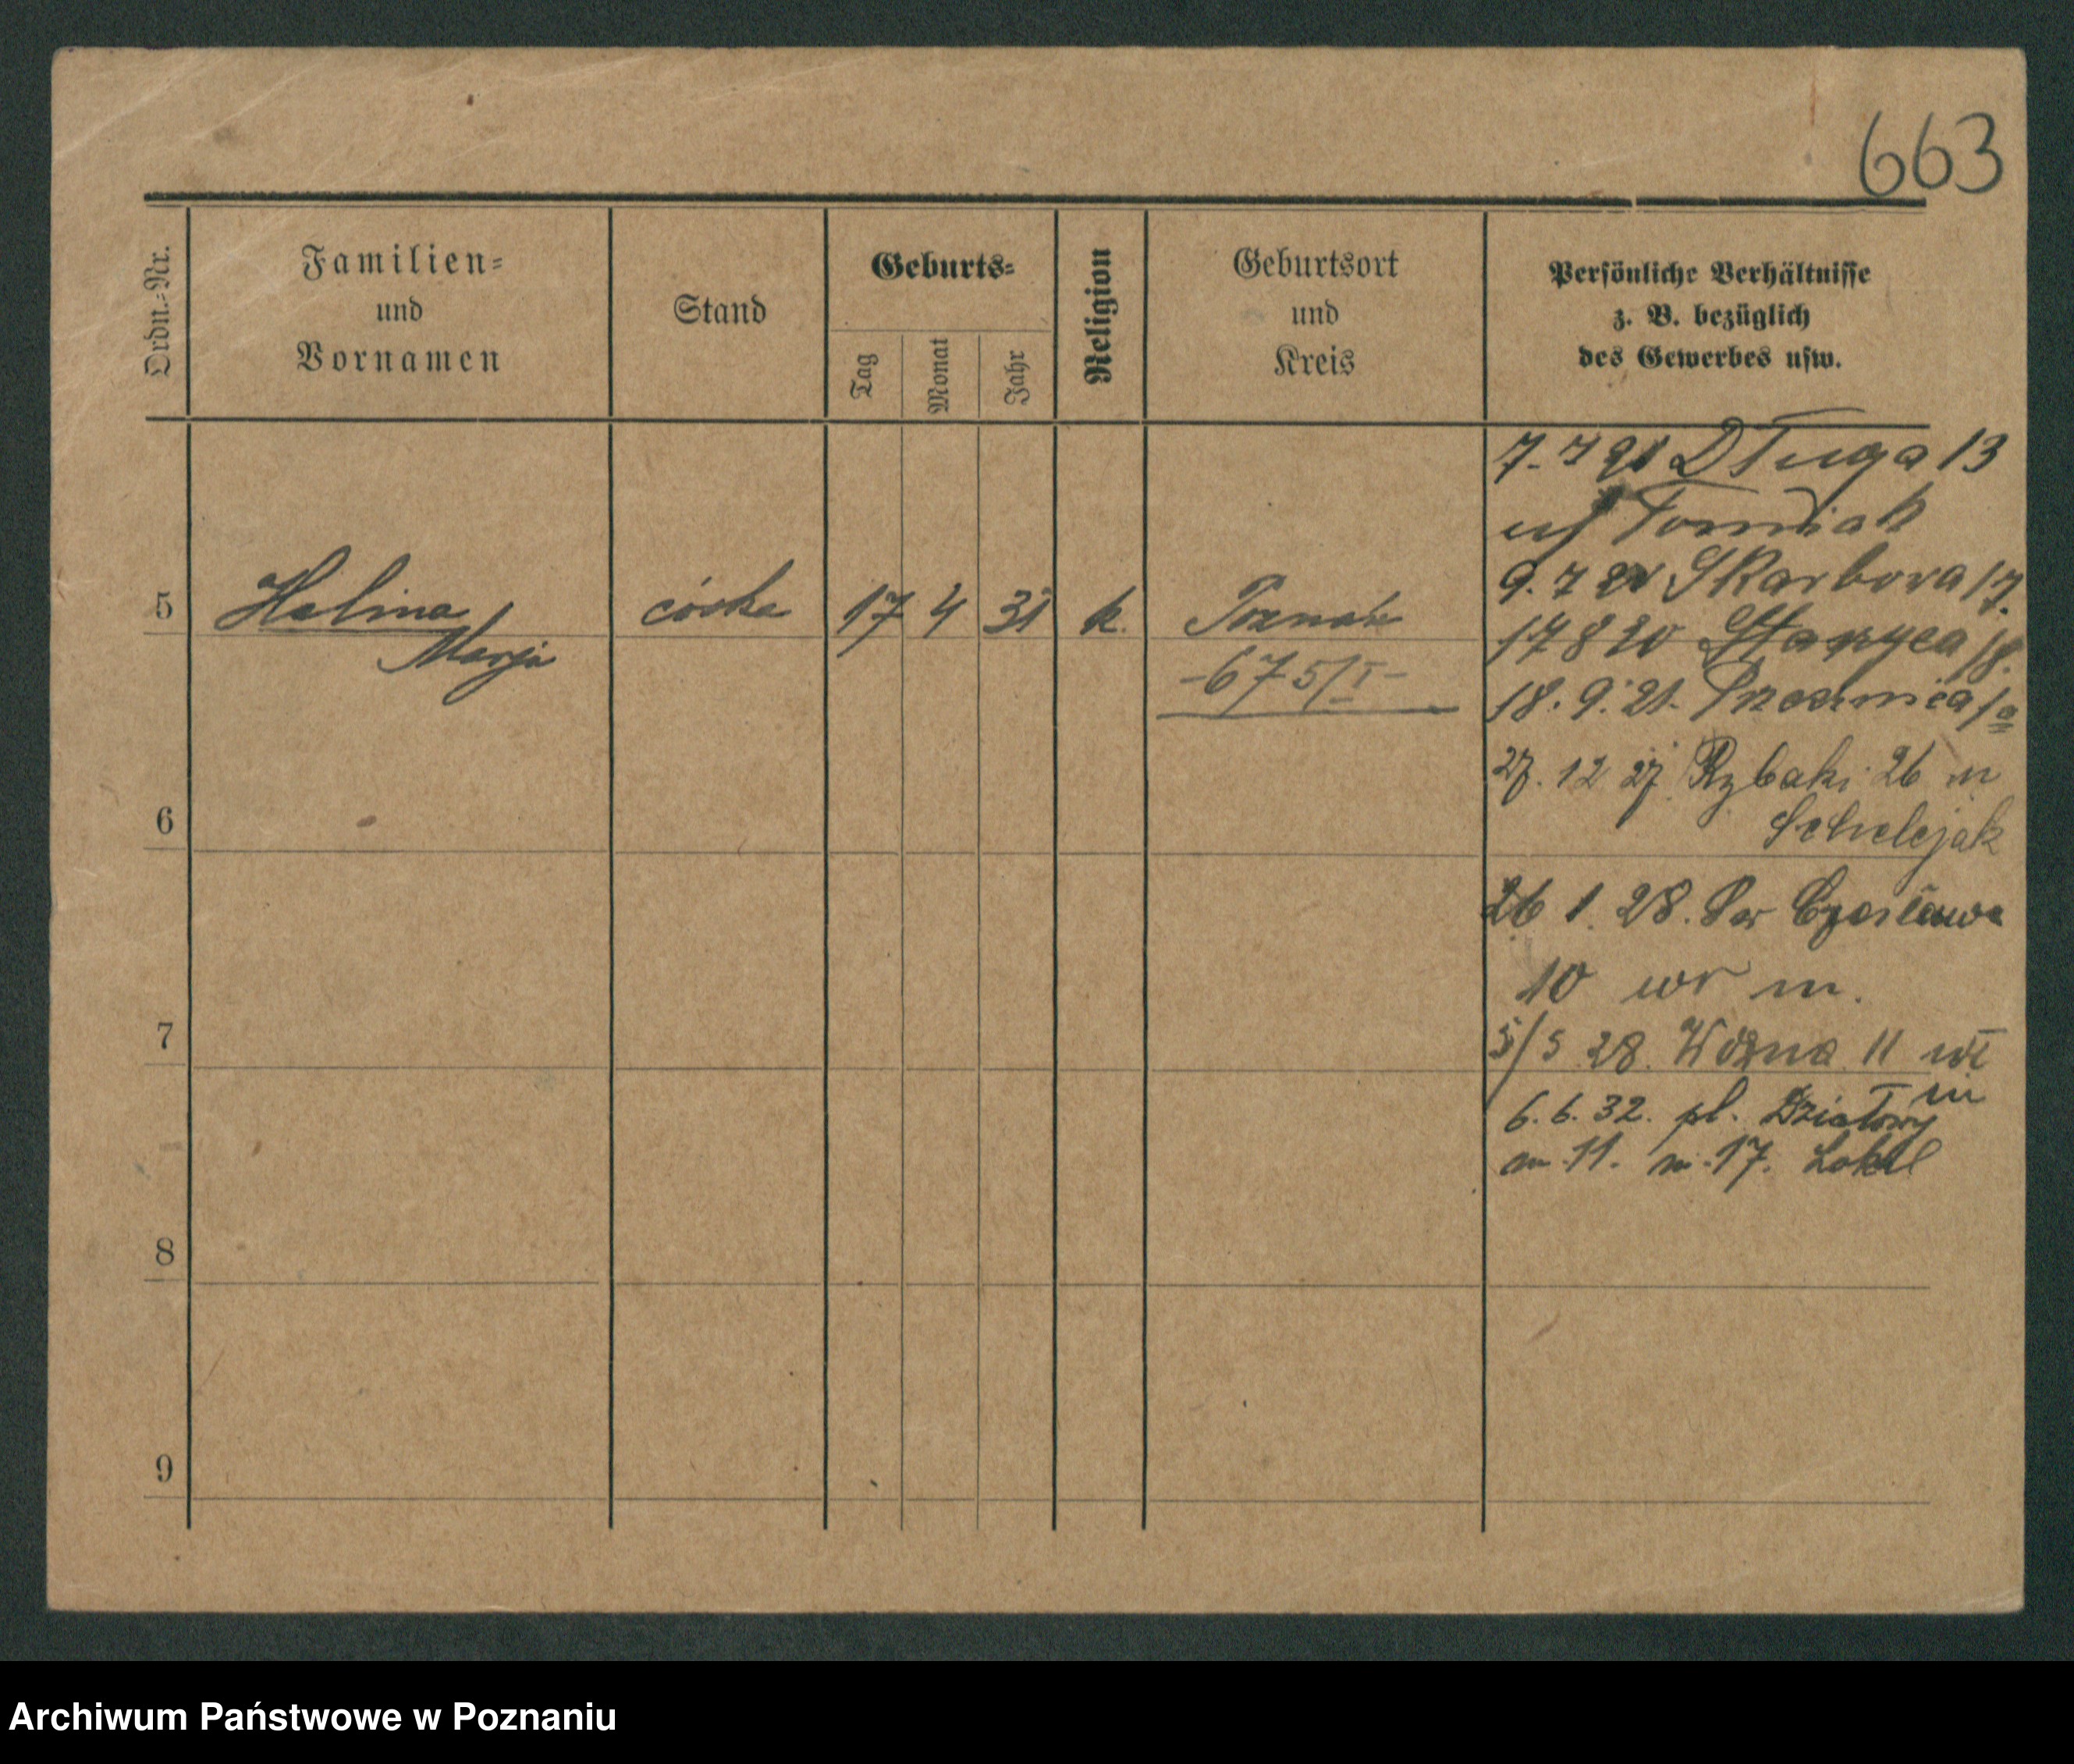 663
Ordn.-Nr.
Familien-
und
Vornamen
Stand
Geburts-
Tag
Monat
Jahr
Religion
Geburtsort
und
Kreis
Persönliche Verhältnisse
z. B. bezüglich
des Gewerbes usw.
5
Halina
Marja
córka
17 4 31
k.
Poznań
-675/I-
7.7 21 Długa 13
Tomiak
9.7 21 Skarbowa 17.
17 8 18.
18.9.21.
27.12 27 Rybaki 26 m
Schelejak
26 1 28. Św Czesława
10 wr m.
5/5 28. Woźna 11 wł
m
6.6.32. pl. Działowy
m. 17. Lokal
6
7
8
9
Archiwum Państwowe w Poznaniu